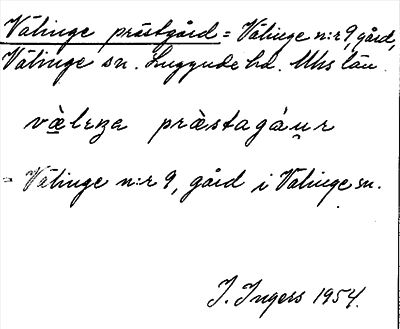 Välinge prästgård = Välinge n:r 9, gård,
Välinge sn. Luggude hd. Mhs län.
væ̀leŋe præ̀stagáu̯r
= Välinge n:r 9, gård i Välinge sn.
I. Ingers 1954.